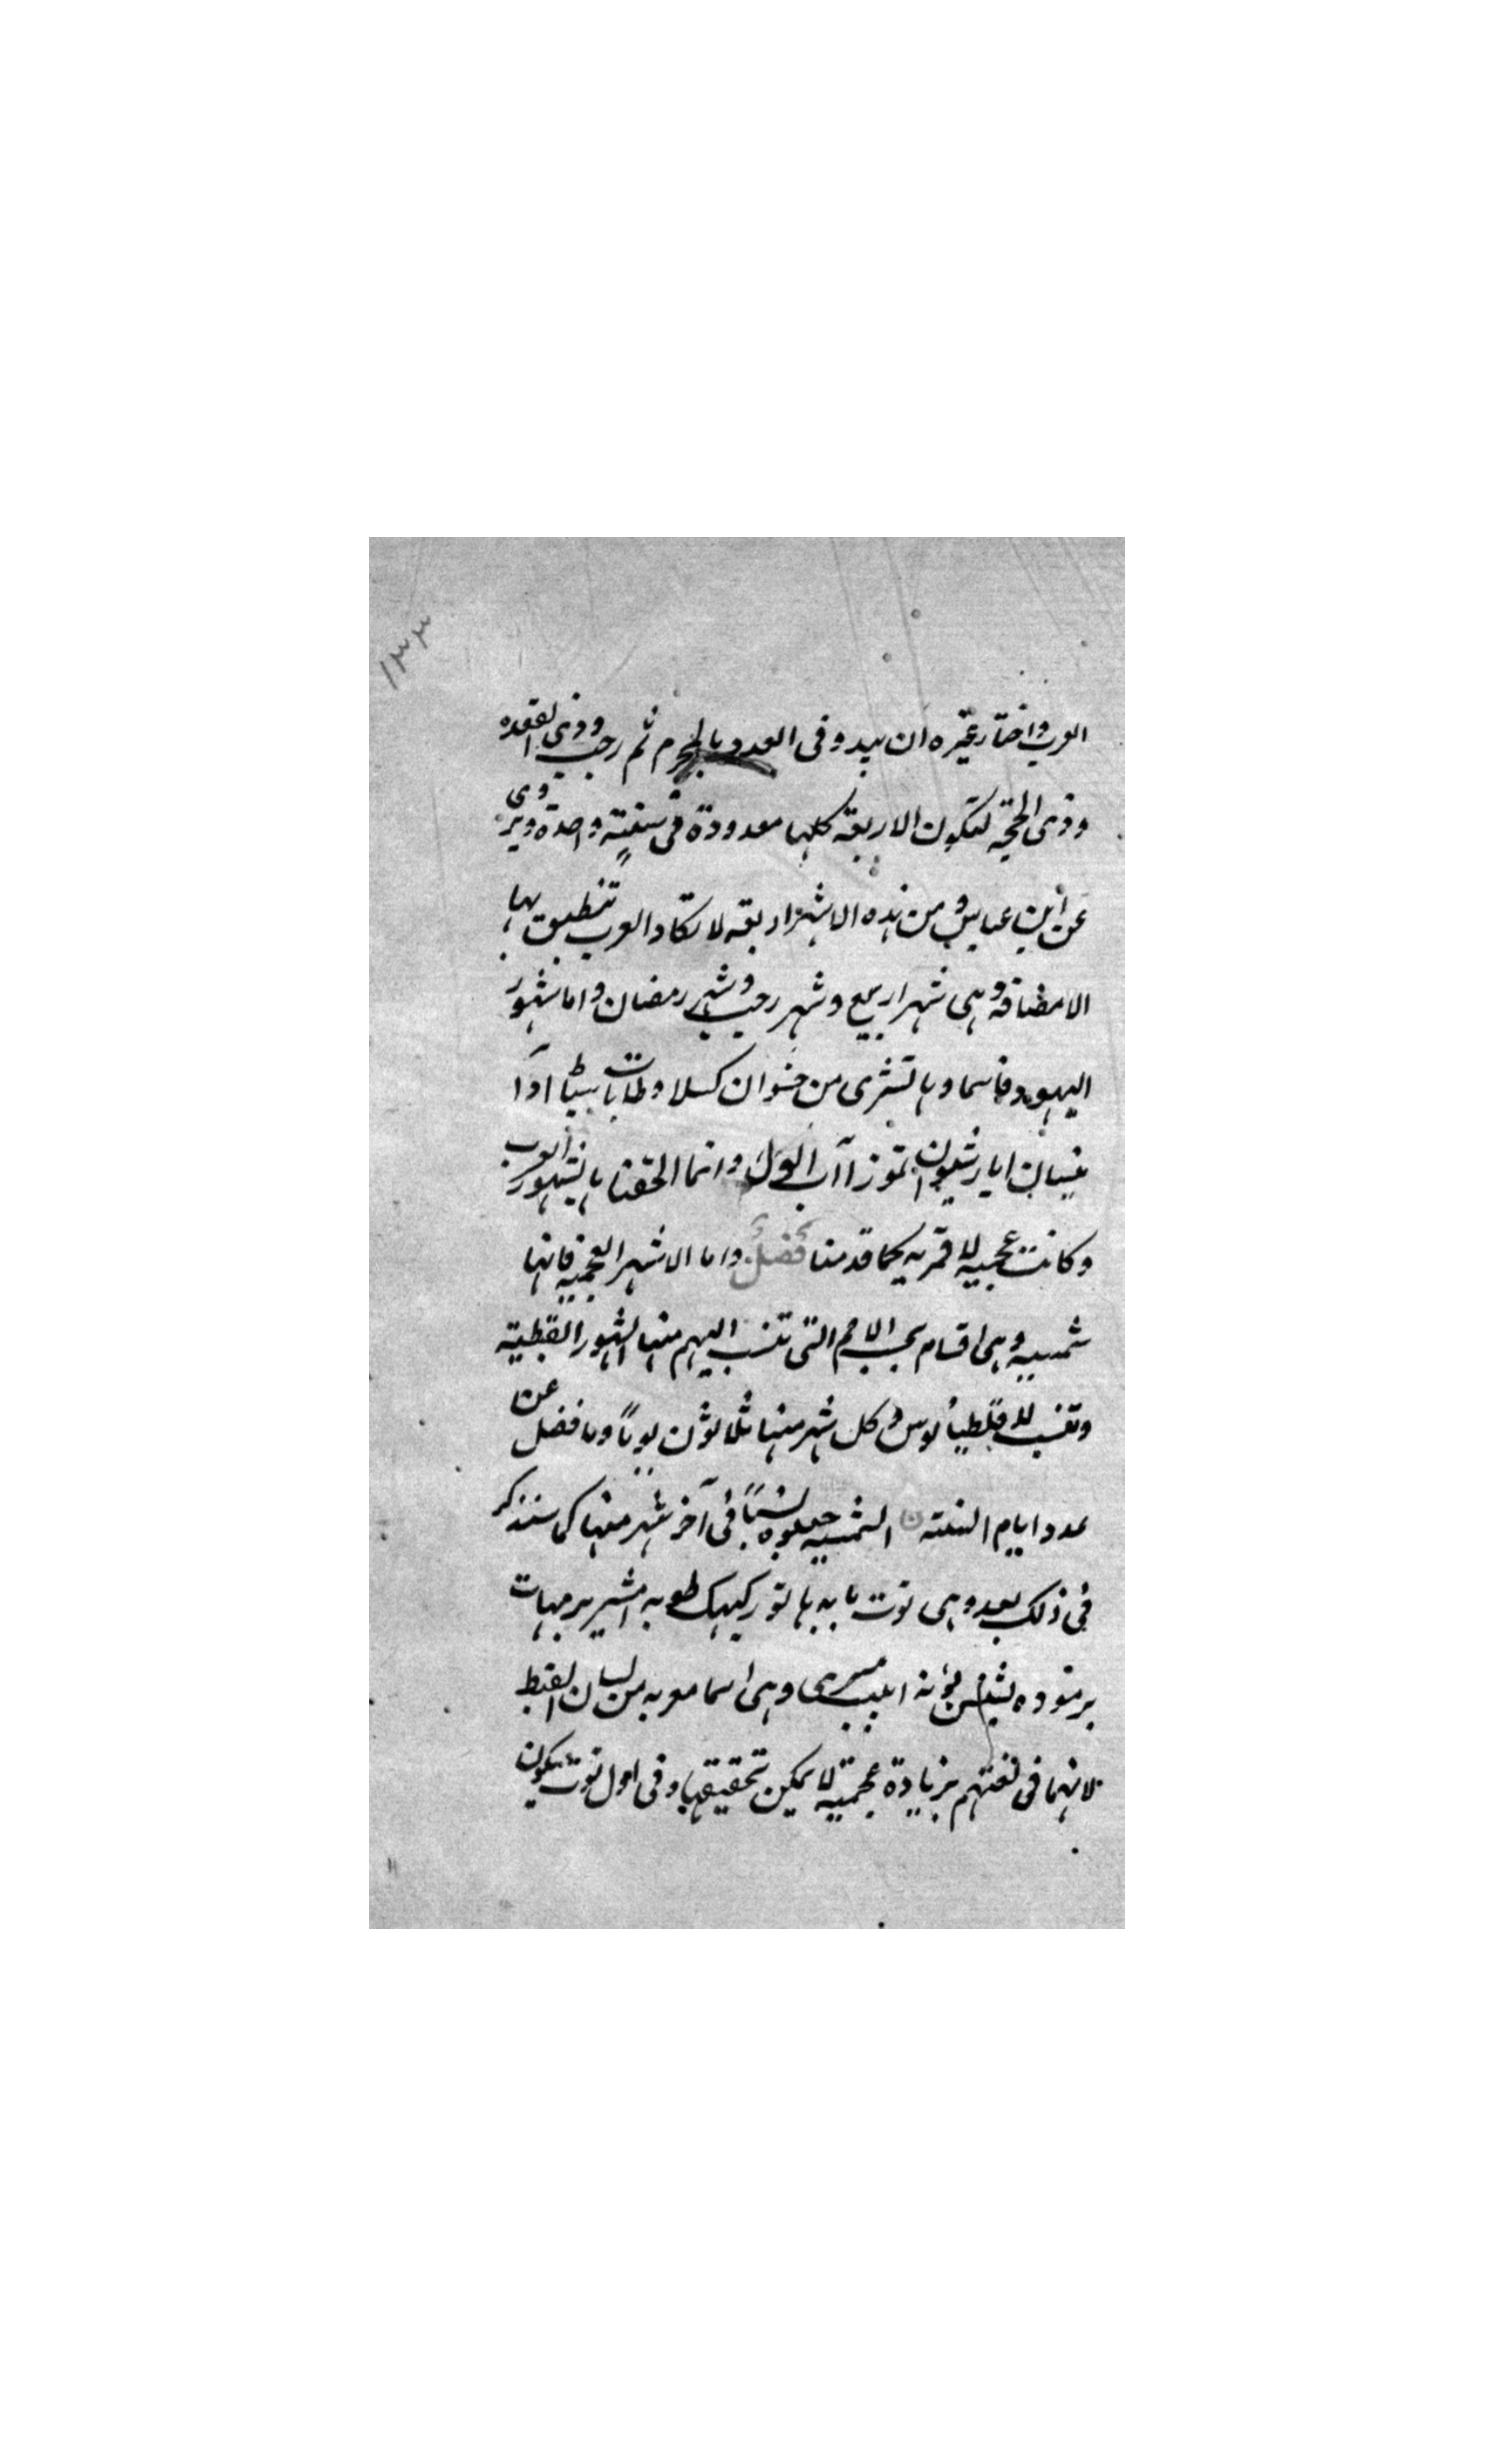 ١٣٣
العرب واختار غيره ان يبدو فى العدد بالمحرم ثم رجب وذى القعده
وذى الحجة لتكون الاربعة كلها معدودة فى سنةٍ واحدة ويروى
عن ابن عباس ومن هذه الاشهر اربعة لا تكاد العرب تنطبق بها
الا مضافة وهى شهرا ربيع وشهر رجب وشهر رمضان واما شهور
اليهود فاسماوها تشرى من حشوان كسلا وطابات سيٹا آدآ
نيسان ايار شيون تموز اآب الول وانما الحقنا بالشهور العرب
وكانت عجميه لا قمريه كما قدمنا فصل واما الاشهر العجميه فانها
شمسيه وهى اقسام بحسب الامم التى تنسب اليهم منها الشهور القبطية
وتنسب للاقلطيانوس وكل شهر منها ثلاثون يوماً وما فضل عن
عدد ايام السنة الشمسيه جعلوه نسيًّا فى آخر شهر منها كما سنذكر
فى ذلك بعد وهى توت بابه هاتور كيهك طوبه امشير برمهات
برموده بشنس بؤنة ابيب مسرى وهى اسما معربه من لسان القبط
لانهما فى لغتهم بزيادة عجمية لا يمكن تحقيقها وفى اول توت يكون